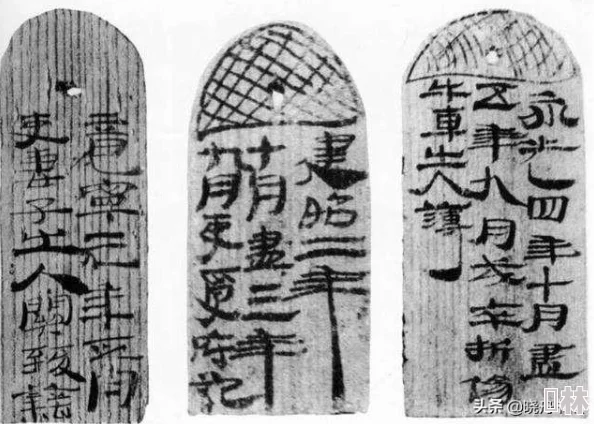 永光四年十月盡
五年八月戍卒折傷
牛車出入簿
建昭二年
十月盡三年
九月吏受府記
竟寧元年正月
吏妻子出入關致籍
头条